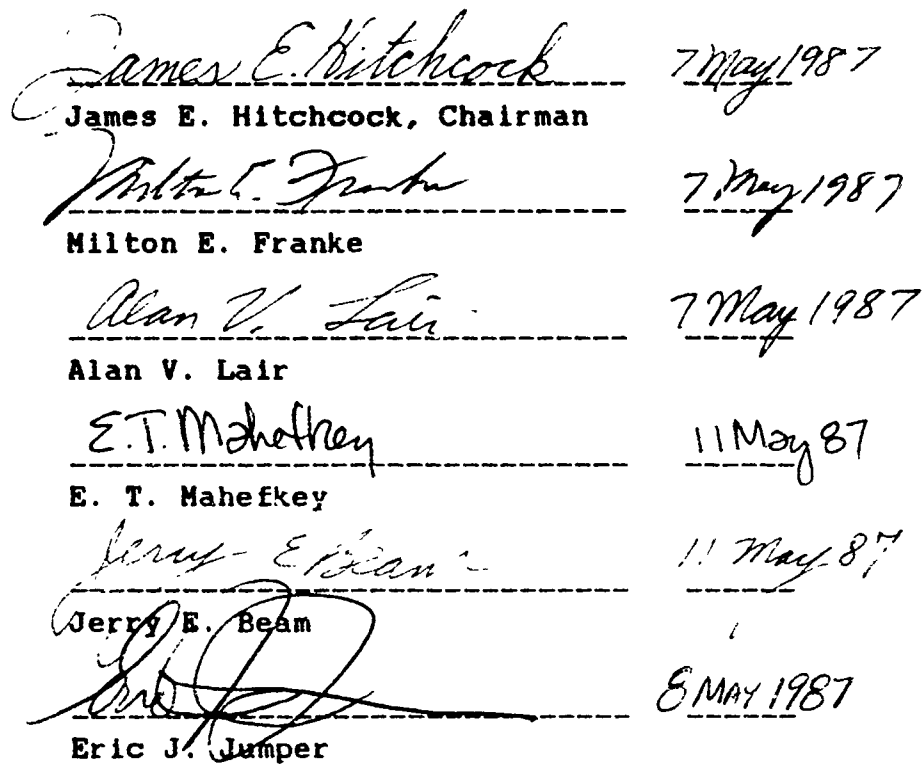 James E. Hitchcock 7 May 1987
James E. Hitchcock, Chairman
Milton E. Franke 7 May 1987
Milton E. Franke
Alan V. Lair 7 May 1987
Alan V. Lair
E.T. Mahefkey 11 May 87
E. T. Mahefkey
Jerry E Beam 11 May 87
Jerry E. Beam
8 MAY 1987
Eric J. Jumper